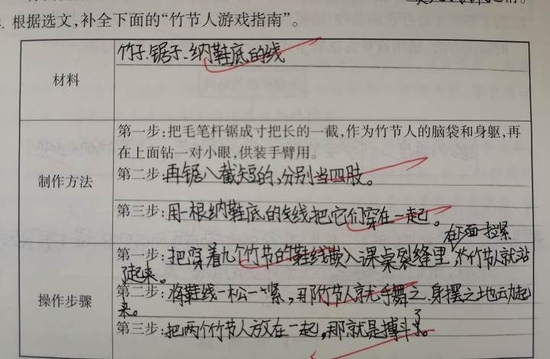 根据选文,补全下面的“竹节人游戏指南”。
材料
竹子.锯子.纳鞋底的线
制作方法
第一步:把毛笔杆锯成寸把长的一截,作为竹节人的脑袋和身躯,再
在上面钻一对小眼,供装手臂用。
第二步:再锯八截短的,分别当四肢。
第三步:用一根纳鞋底的线把它们穿在一起。
操作步骤
在下面一拉紧
第一步:把穿着九个竹节的鞋线嵌入课桌裂缝里,竹节人就站
起来。
第二步:将鞋线一松一紧,那竹节人就手舞之、身摆之地动起
来。
第三步:把两个竹节人放在一起,那就是搏斗了。